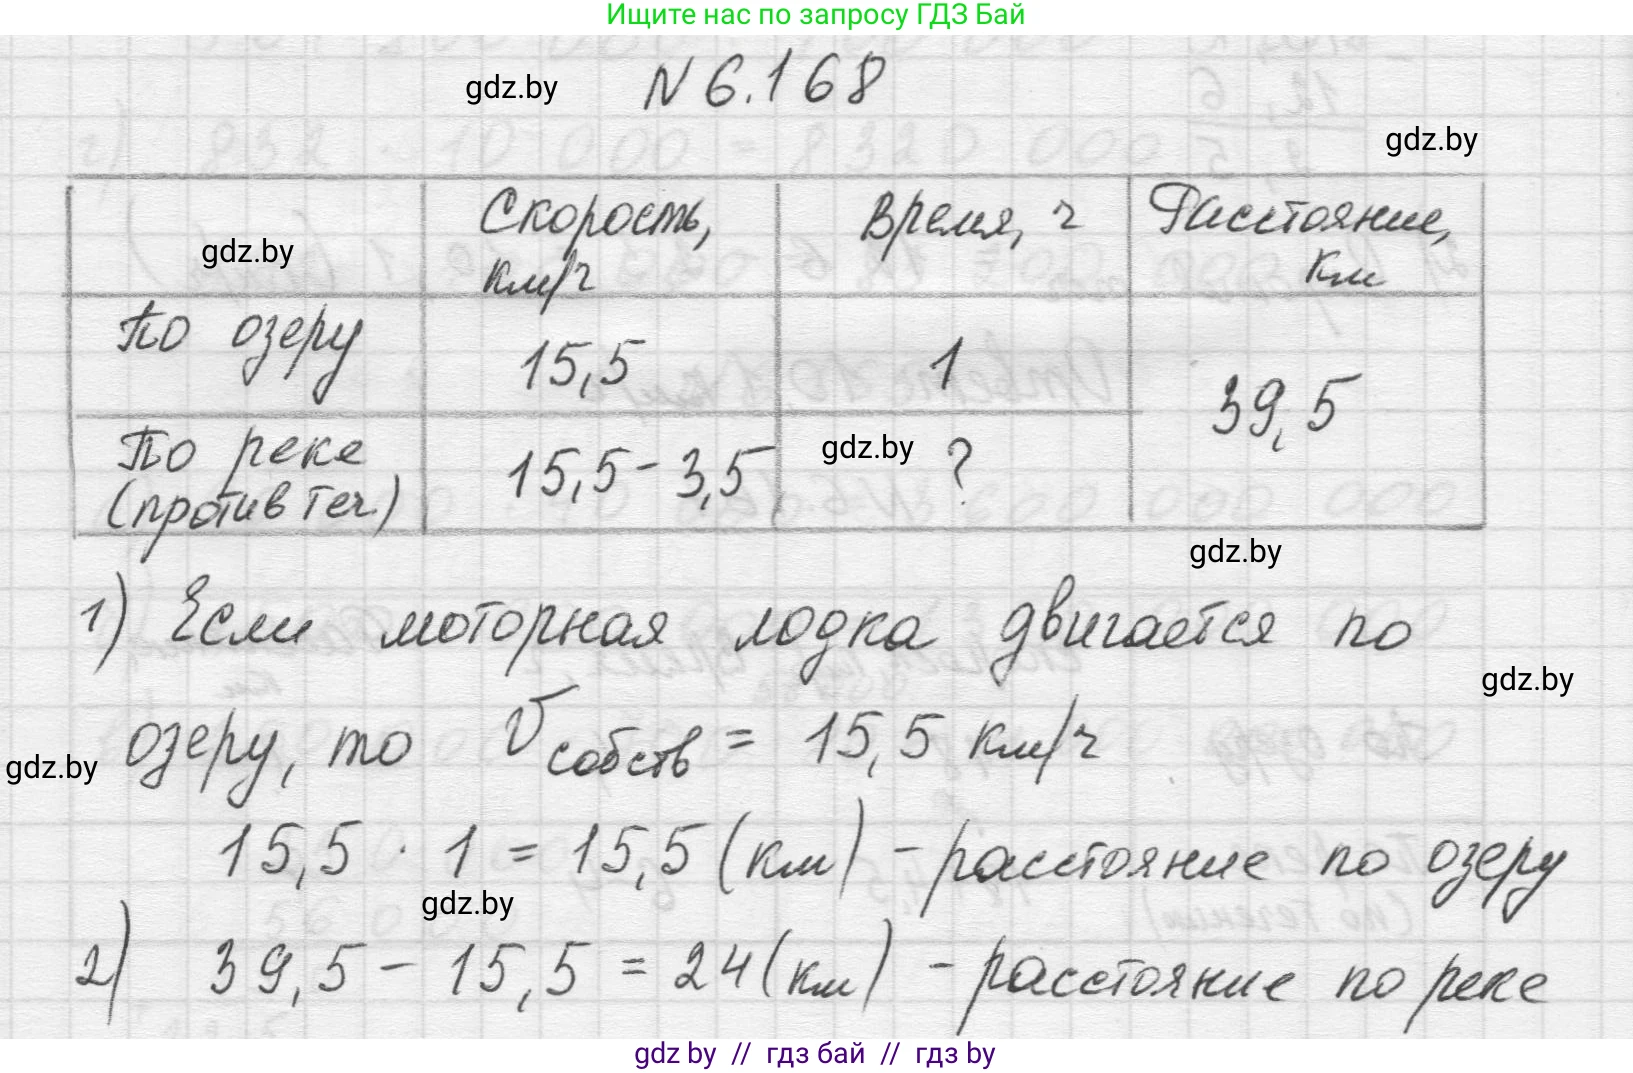 Ищите нас по запросу ГДЗ Бай
N 6.168
gdz.by
gdz.by
gdz.by
Скорость, км/ч
Время, ч
Расстояние, км
По озеру
15,5
1
39,5
По реке (против теч.)
15,5 - 3,5
gdz.by
?
gdz.by
1) Если моторная лодка двигается по
gdz.by
озеру, то Vсобств = 15,5 км/ч
gdz.by
15,5 · 1 = 15,5 (км) - расстояние по озеру
gdz.by
2) 39,5 - 15,5 = 24 (км) - расстояние по реке
gdz by // гдз бай // гдз by